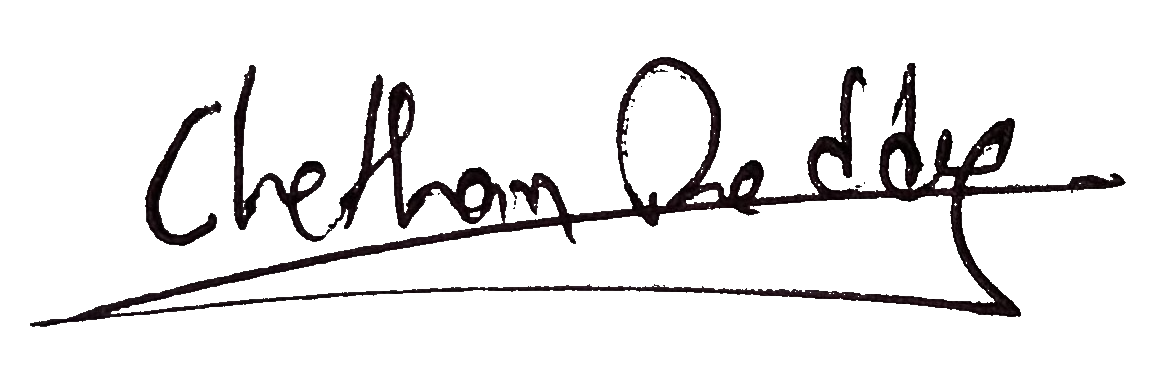 Chethan Reddy